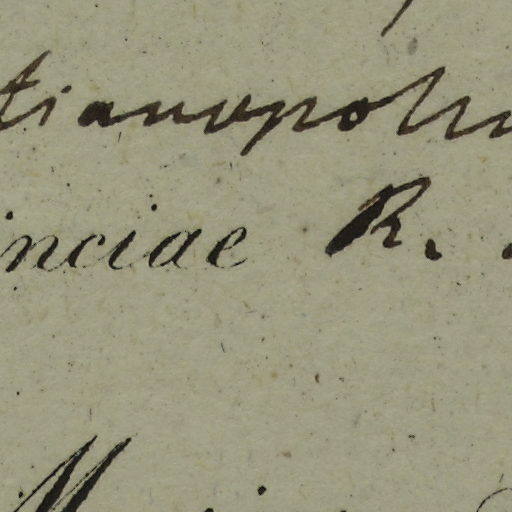 tianopoli
inciae R.